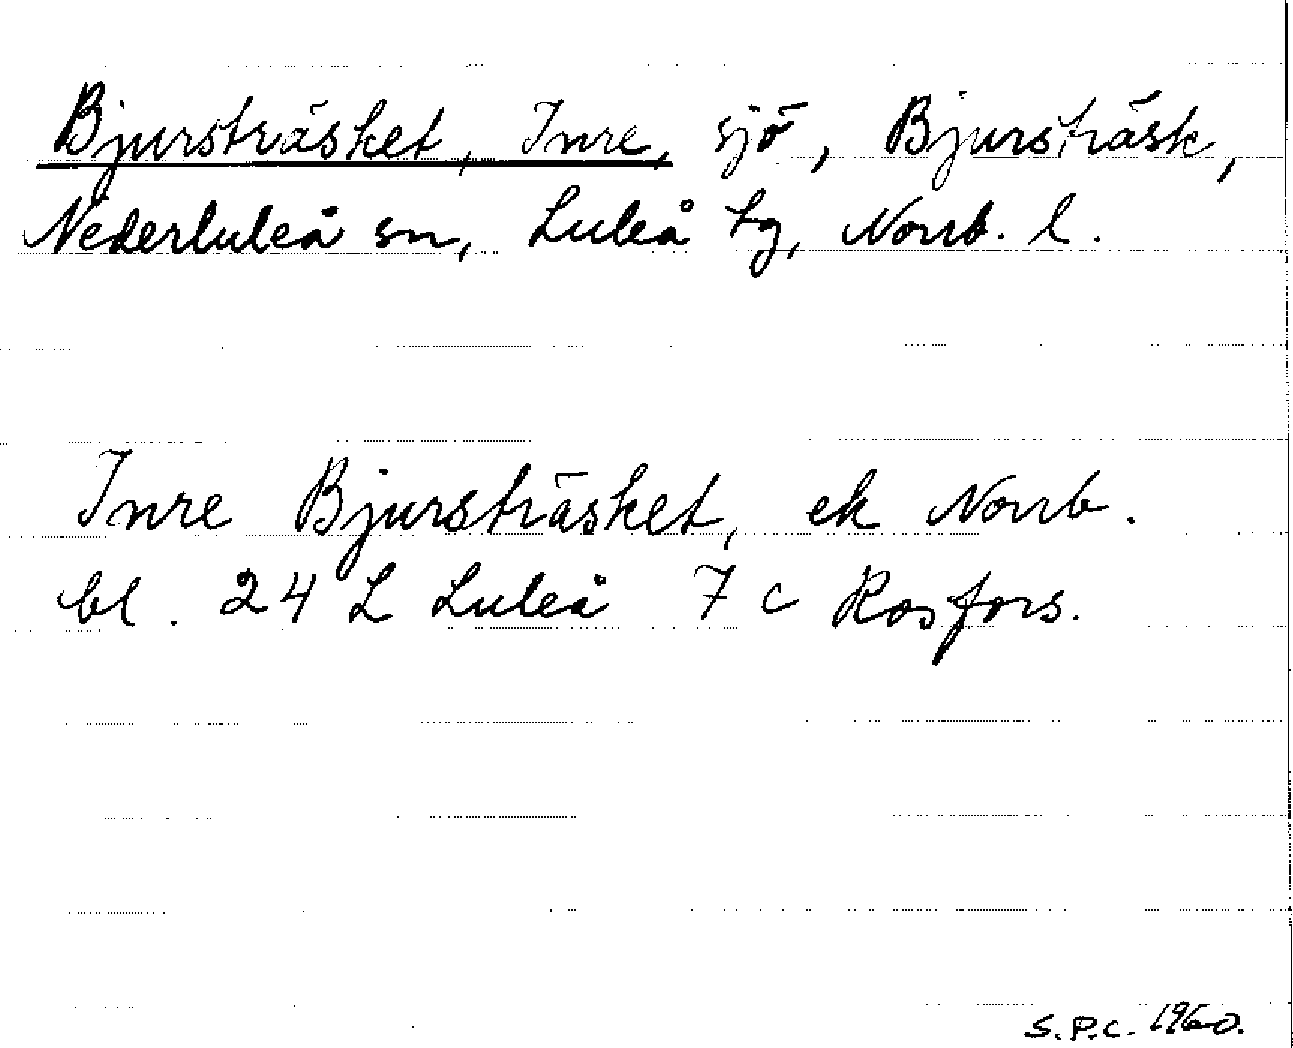 Bjursträsket, Inre, sjö, Bjursträsk,
Nederluleå sn, Luleå tg, Norrb. l.
Inre Bjursträsket, ek Norrb.
bl. 24 L Luleå 7 c Rosfors.
S.P.C. 1960.